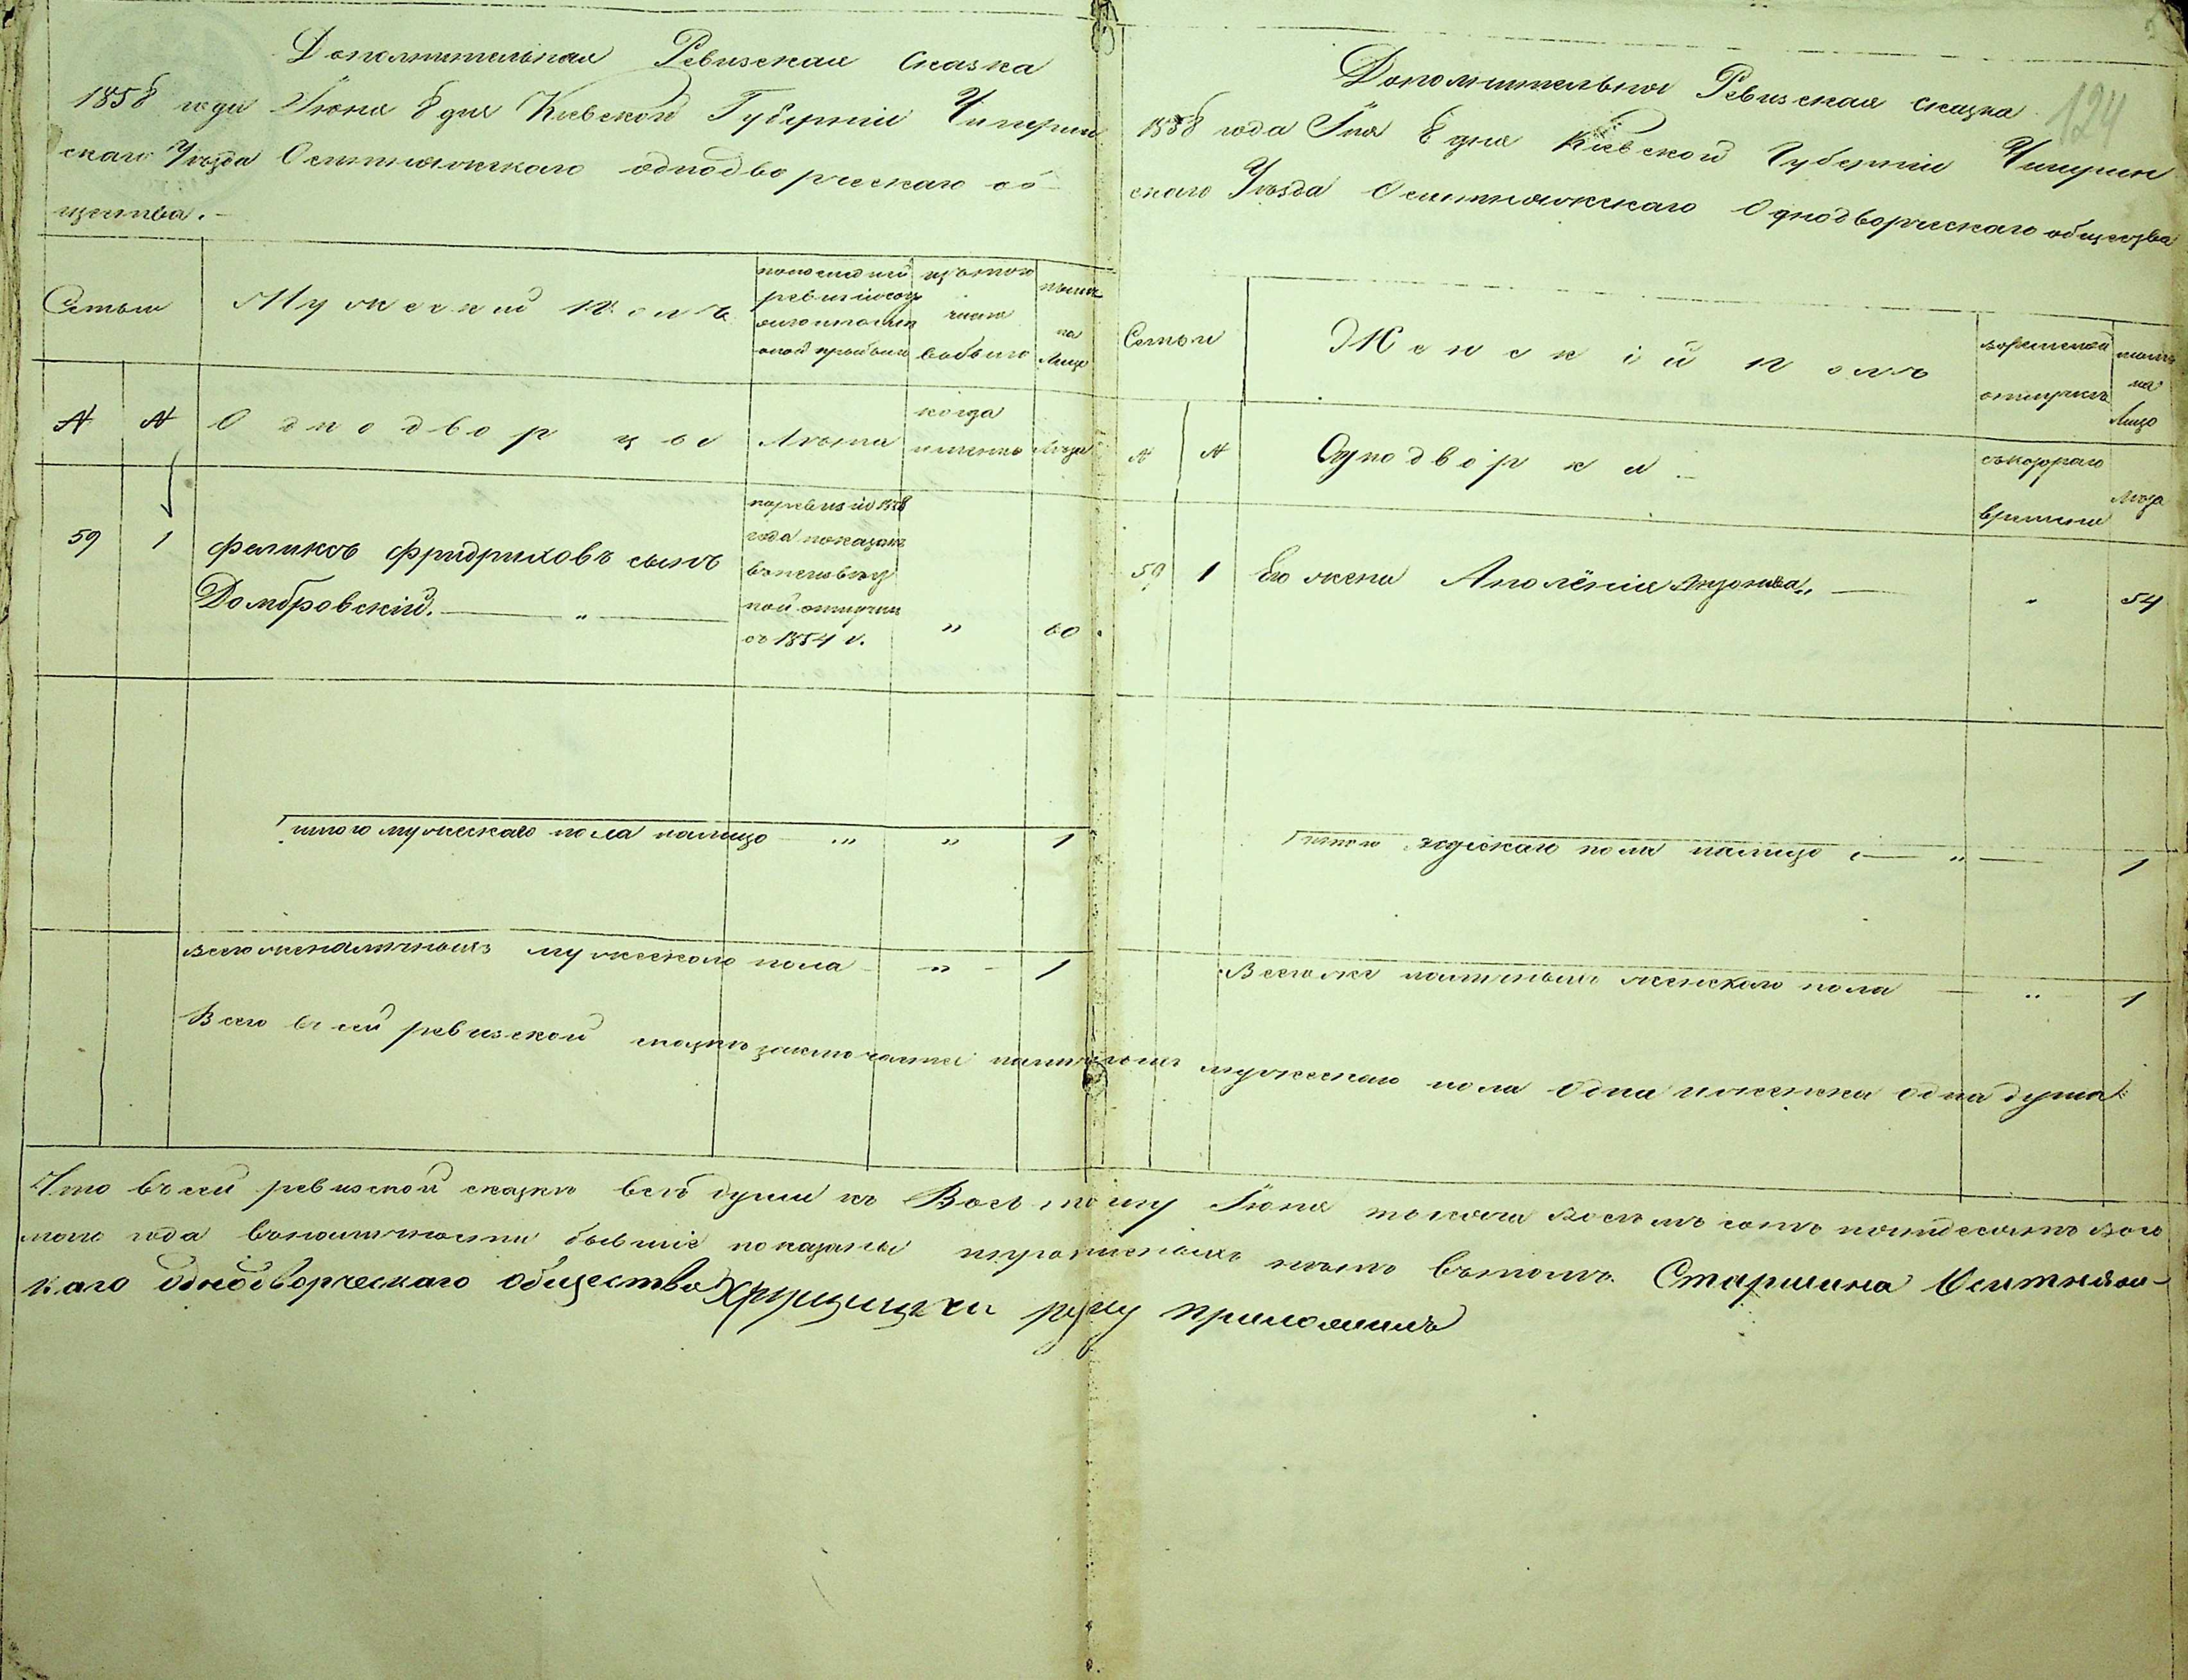 Дополнительная Ревизская сказка
1858 года Іюня 8 дня Кіевской Губерніи Чигирин
скаго Уѣзда Оситняжскаго однодворческаго об
щества.
Семьи
Мужескій полъ
по последней
ревизіи
изъ того
числа
выбыло
нынѣ
на
лицо
№ №
Однодворцы
Лѣта
когда
именно
Лѣта
59 1 Феликсъ Фридриховъ сынъ
Домбровскій. — „ —
по ревизіи 1858
года показанъ
ной отлучки
съ 1854 г.
„ 60.
итого мужескаго пола налицо „ „ 1
всего же наличныхъ мужескаго пола - „ - 1
124
Дополнительная Ревизская сказка
1858 года Іюня 8 дня Кіевской Губерніи Чигирин
скаго Уѣзда Оситняжскаго Однодворческаго общества
Семьи
Женскій полъ
во временной
отлучкѣ
нынѣ
на
лицо
№ №
Однодворки
съ котораго
времени
Лѣта
59 1 Его жена Аполёнія Антонова „ 54
Итого женскаго пола налицо — „ — 1
Всего же наличныхъ женскаго пола — „ 1
Всего въ сей ревизской сказкѣ заключается наличныхъ мужескаго пола одна и женска одна душа
Что въ сей ревизской сказкѣ всѣ души къ Восьмому Іюня тысяча восемъ сотъ пятидесятъ вось
мого года въ наличности бывшіе показаны и пропис­ныхъ нѣтъ въ томъ. Старшина Оситняж-
каго однодворческаго общества руку приложилъ